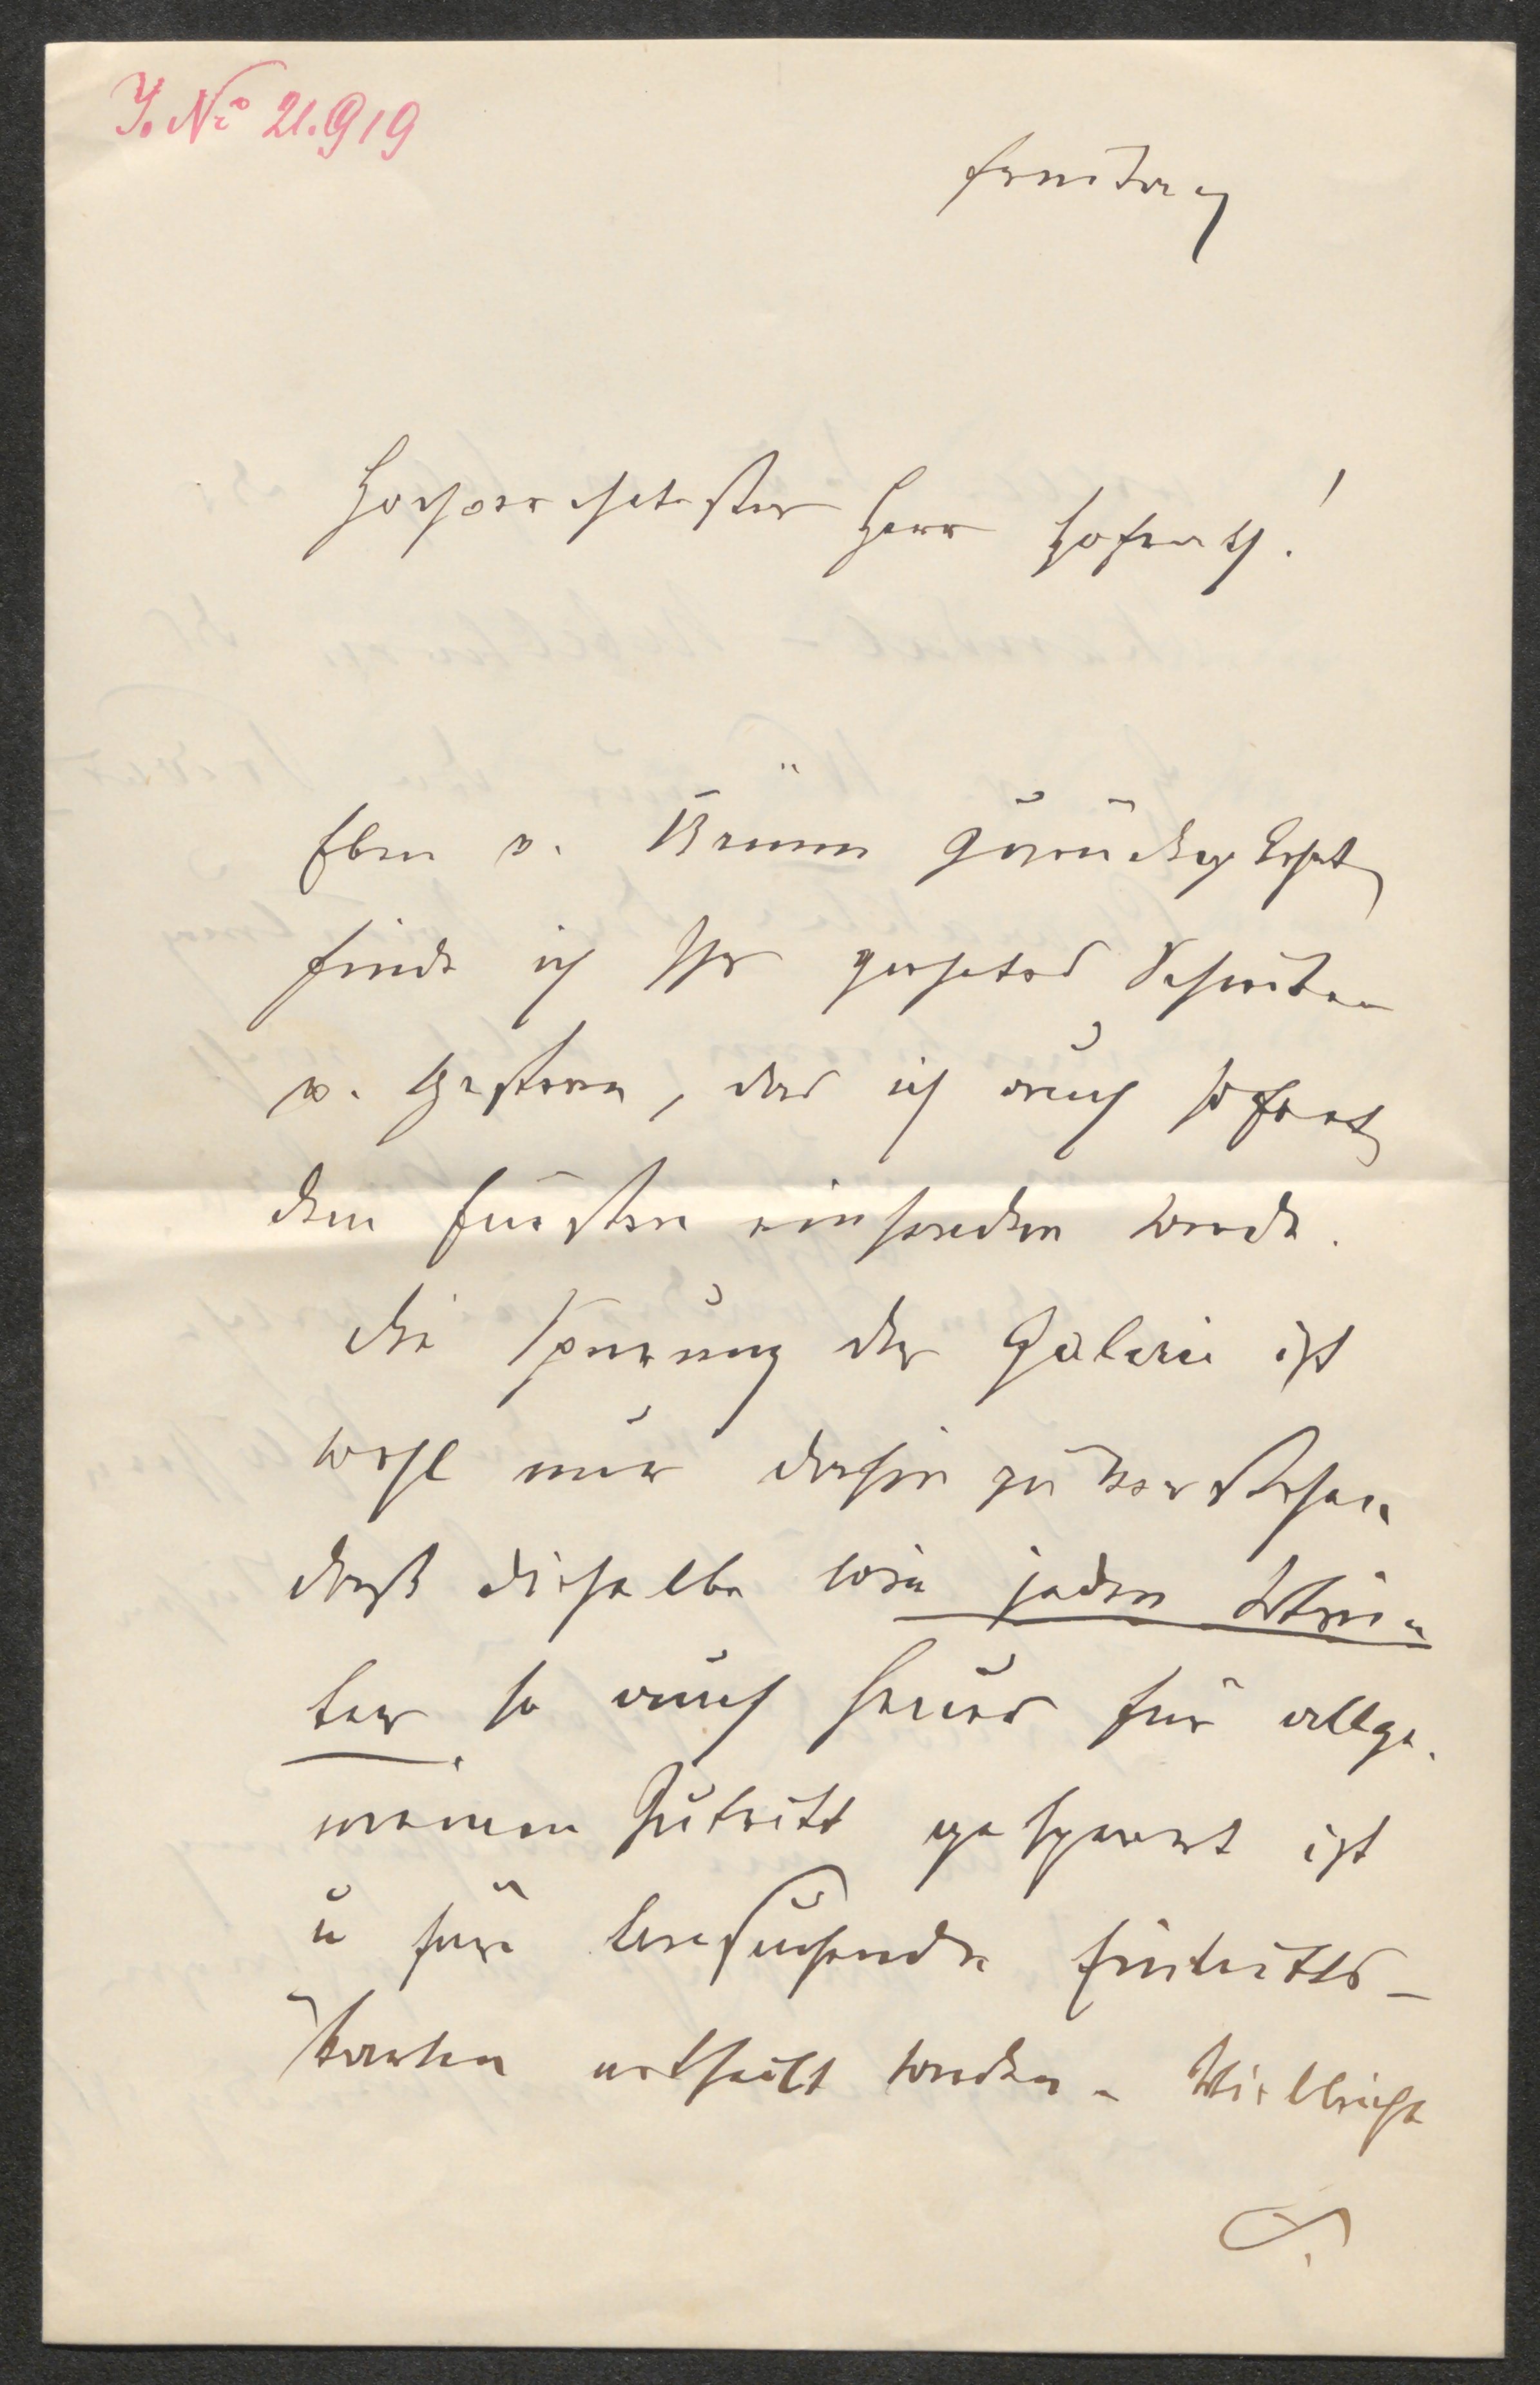 J. No 21.919
Freitag
Hochverehrtester Herr Hofrath!
Eben v. Brünn zurückgekehrt
finde ich Ihr geehrtes Schreiben
v. Gestern, das ich auch sofort
dem Fürsten einsenden werde.
Die Sperrung der Galerie ist
wohl nur dahin zu verstehen
daß dieselbe wie jeden Win-
ter so auch heuer für allge-
meinen Zutritt gesperrt ist
u für Eintritts-
karten ertheilt werden. Vielleicht